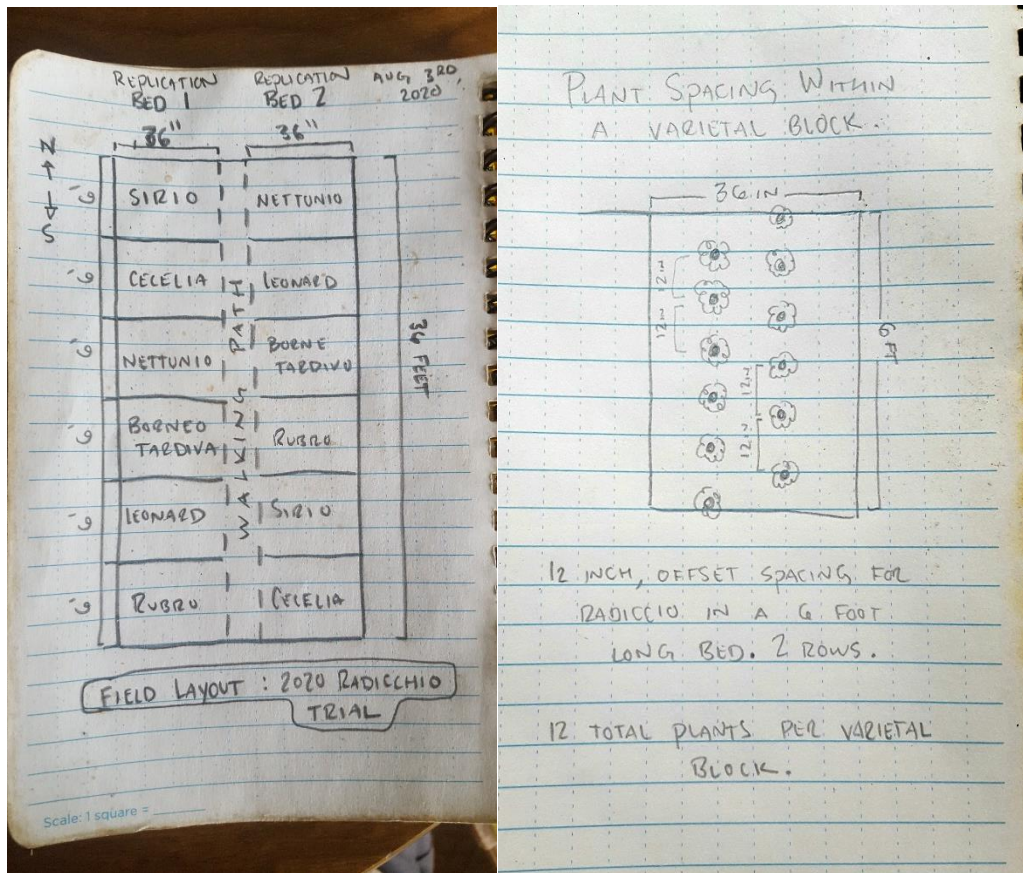 REPLICATION
BED 1
REPLICATION
BED 2
AUG 3RD,
2020
36"
36"
N
S
6'
SIRIO
NETTUNIO
6'
CECELIA
LEONARD
6'
NETTUNIO
BORNE
TARDIVO
6'
BORNEO
TARDIVA
RUBRO
6'
LEONARD
SIRIO
6'
RUBRO
CECELIA
WALKING PATH
36 FEET
FIELD LAYOUT : 2020 RADICCHIO
TRIAL
Scale: 1 square =
PLANT SPACING WITHIN
A VARIETAL BLOCK.
36 IN
12 IN
12 IN
12 IN
12 IN
6 FT
12 INCH, OFFSET SPACING FOR
RADICCIO IN A 6 FOOT
LONG BED. 2 ROWS.
12 TOTAL PLANTS PER VARIETAL
BLOCK.